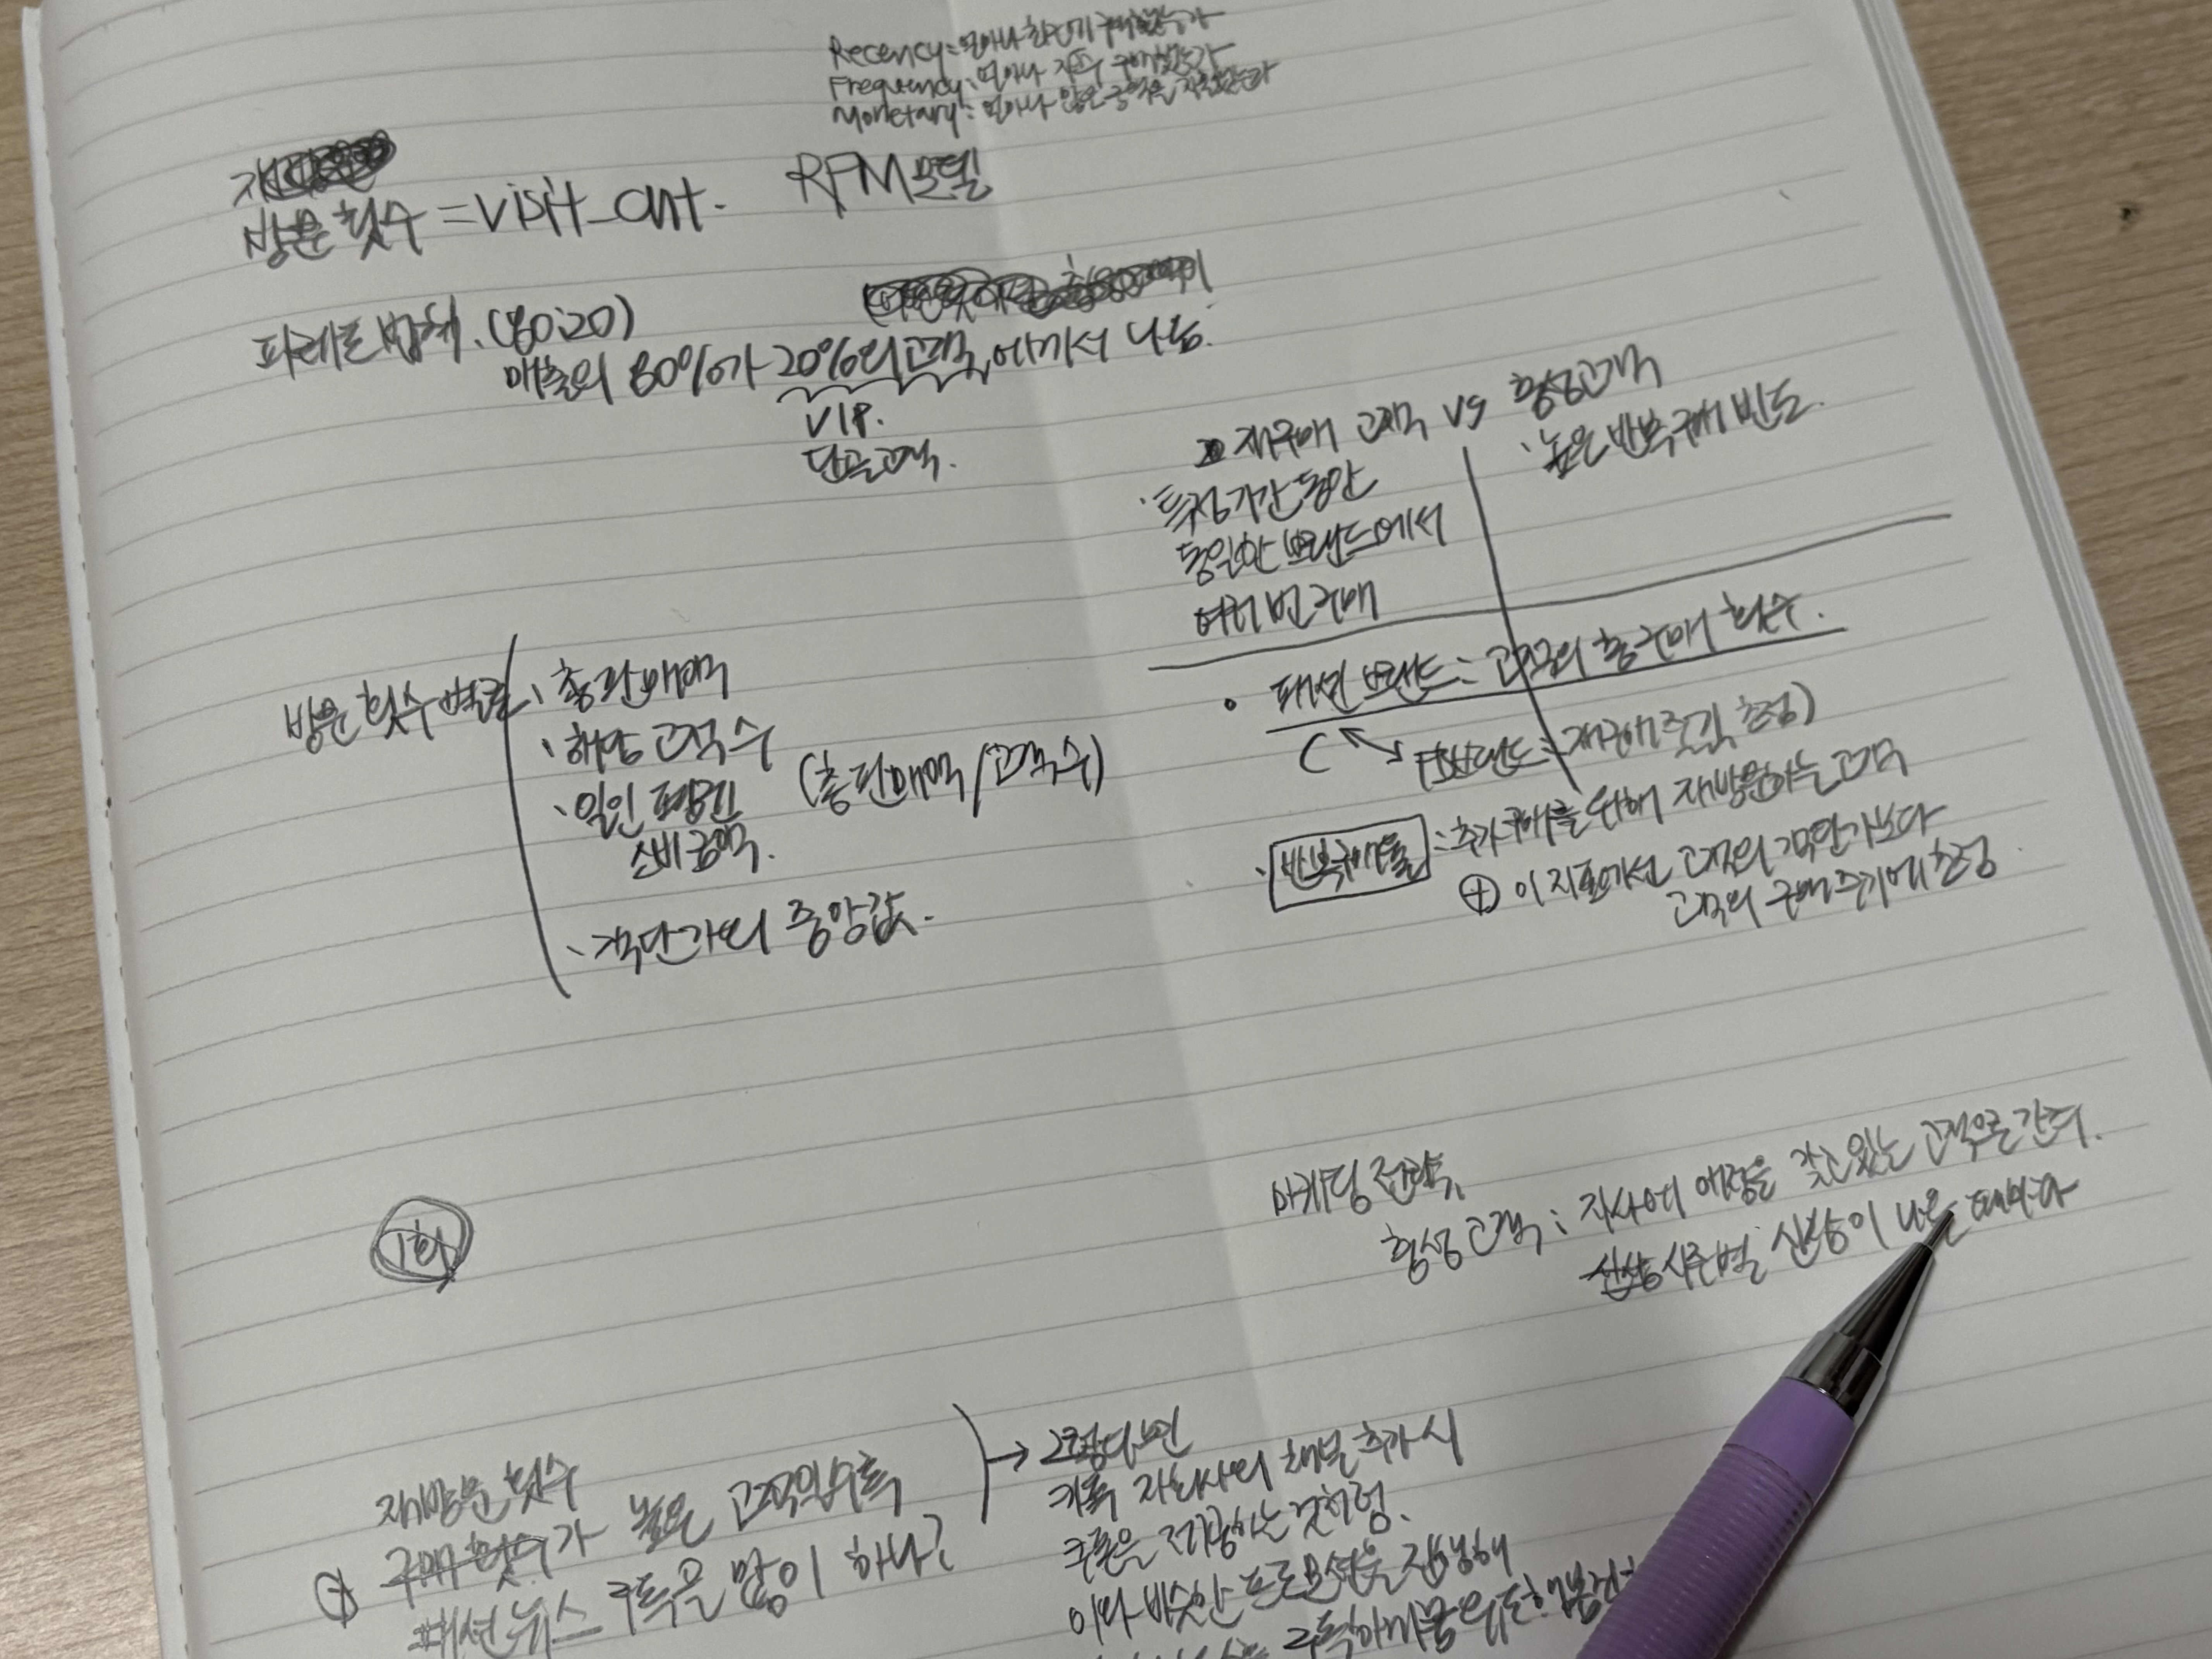 Recency: 얼마나 최근에 구매했는가
Frequency: 얼마나 자주 구매했는가
Monetary: 얼마나 많은 금액을 지출했는가
방문 횟수 = visit_cnt.
RFM 모델
파레토 법칙. (80:20)
매출의 80%가 20%의 고객에게서 나옴.
VIP.
단골고객.
재구매 고객 vs 충성고객
· 특정기간 동안
동일한 브랜드에서
여러 번 구매
· 높은 반복 구매 빈도.
방문 횟수 별로
· 총 판매액
· 해당 고객 수
· 일인 평균
소비 금액.
(총 판매액/고객수)
· 객단가의 중앙값.
• 패션 브랜드: 고객의 총 구매 횟수.
재구매 주기 측정)
· 반복구매율 : 추가 구매를 위해 재방문하는 고객
⊕ 이 지표에선 고객의 객단가보다
고객의 구매 주기에 초점
1회
마케팅 전략.
충성 고객: 자사에 애정을 갖고 있는 고객으로 간주.
신상 시즌별 신상이 나올 때마다
재방문 횟수
구매 횟수가 높은 고객일수록
패션 뉴스 구독을 많이 하나?
→ 그렇다면
카톡 자회사의 채널 추가 시
쿠폰을 제공하는 것처럼.
이와 비슷한 프로모션을 진행해
구독하게끔 유도